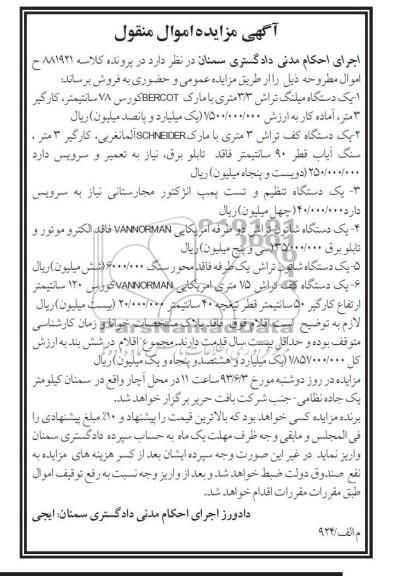 آگهی مزایده اموال منقول
اجرای احکام مدنی دادگستری سمنان در نظر دارد در پرونده کلاسه ۸۸۱۹۲۱ ح
اموال مطروحه ذیل را از طریق مزایده عمومی و حضوری به فروش برساند:
۱-یک دستگاه میلنگ تراش ۳/۳متری با مارک BERCOT کورس ۷۸سانتیمتر، کارگیر
۳ متر، آماده کار به ارزش ۱/۵۰۰/۰۰۰/۰۰۰ (یک میلیارد و پانصد میلیون) ریال
۲-یک دستگاه کف تراش ۳ متری با مارک SCHNEIDER آلمانغربی، کارگیر ۳ متر ،
سنگ آیاب قطر ۹۰ سانتیمتر فاقد تابلو برق، نیاز به تعمیر و سرویس دارد
۲۵۰/۰۰۰/۰۰۰ (دویست و پنجاه میلیون) ریال
۳- یک دستگاه تنظیم و تست پمپ انژکتور مجارستانی نیاز به سرویس
دارد ۴۰/۰۰۰/۰۰۰ (چهل میلیون) ریال
۴- یک دستگاه شاتون تراش دو طرفه آمریکایی VANNORMAN فاقد الکترو موتور و
تابلو برق ۳۵/۰۰۰/۰۰۰ (سی و پنج میلیون) ریال
۵-یک دستگاه شاتون تراش یک طرفه فاقد محور سنگ ۶/۰۰۰/۰۰۰ (شش میلیون) ریال
۶- یک دستگاه کف تراش ۱/۵ متری آمریکایی VANNORMAN کورس ۱۲۰ سانتیمتر
ارتفاع کارگیر ۵۰ سانتیمتر قطر تیغچه ۴۰ سانتیمتر ۲۰/۰۰۰/۰۰۰ (بیست میلیون) ریال
لازم به توضیح است اقلام فوق فاقد پلاک مشخصات خوانا و زمان کارشناسی
متوقف بوده و حداقل بیست سال قدمت دارند. مجموع اقلام در شش بند به ارزش
کل ۱/۸۵۱/۰۰۰/۰۰۰ (یک میلیارد و هشتصد و پنجاه و یک میلیون) ریال
مزایده در روز دوشنبه مورخ ۹۳/۶/۳ ساعت ۱۱ در محل آچار واقع در سمنان کیلومتر
یک جاده نظامی-جنب شرکت بافت حریر برگزار خواهد شد.
برنده مزایده کسی خواهد بود که بالاترین قیمت را پیشنهاد و ۱۰٪ مبلغ پیشنهادی را
فی المجلس و مابقی وجه ظرف مهلت یک ماه به حساب سپرده دادگستری سمنان
واریز نماید در غیر این صورت وجه سپرده ایشان بعد از کسر هزینه های مزایده به
نفع صندوق دولت ضبط خواهد شد و بعد از واریز وجه نسبت به رفع توقیف اموال
طبق مقررات مقررات اقدام خواهد شد.
دادورز اجرای احکام مدنی دادگستری سمنان: ایجی
م الف/۹۲۴